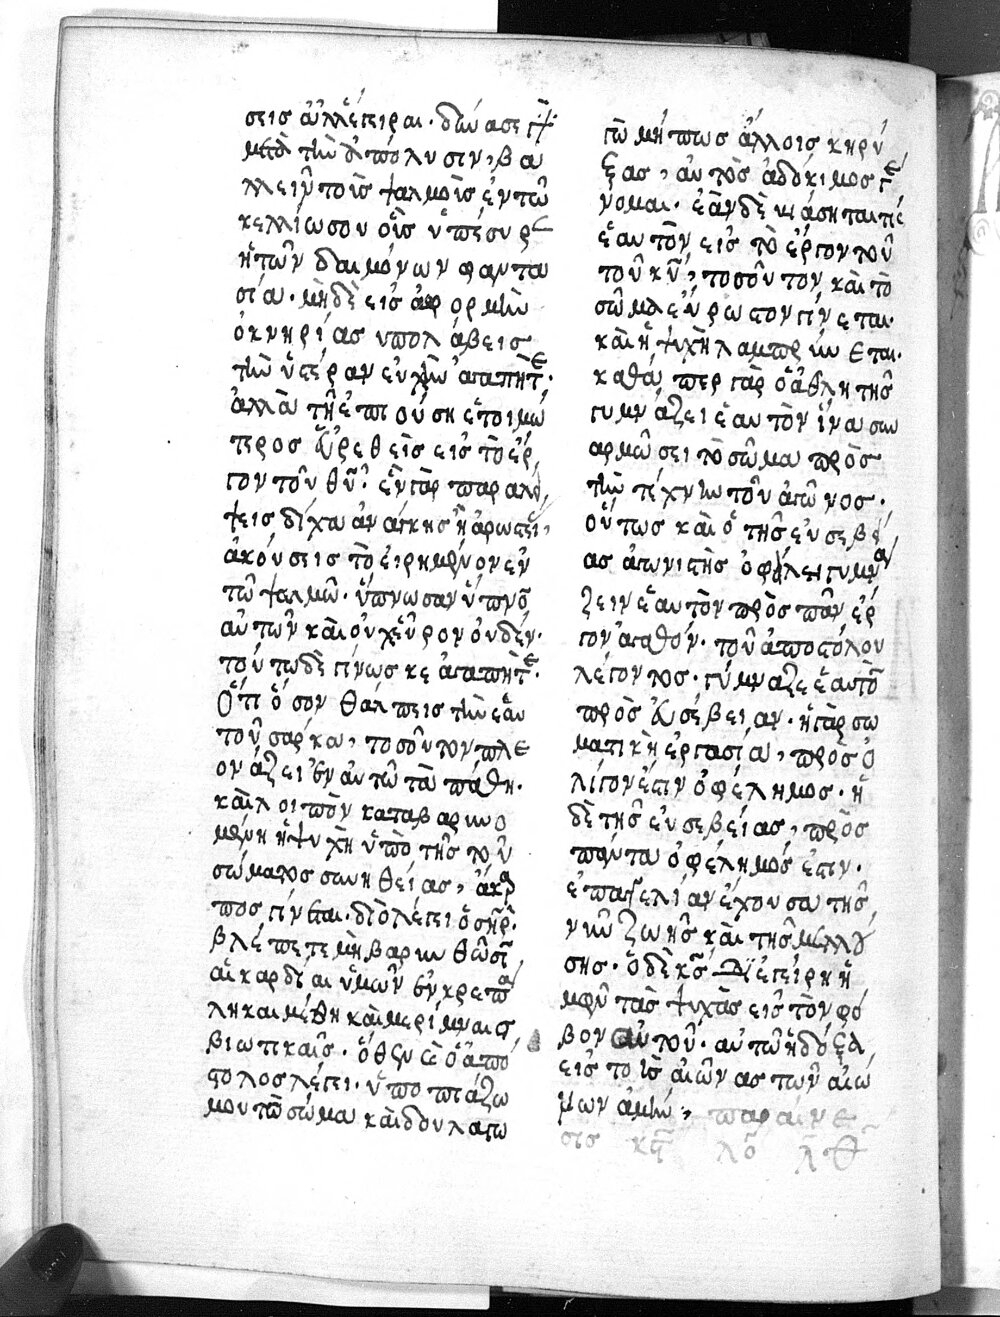 σεις αὖλλέπειραι· δίω ασε
μετὰ τὴν ἀπόλυσιν, βα
λλειν τοῖς ψαλμοῖς ἐν τῶ
κελλίω σου
ἡ τῶν δαιμόνων φαντα
σία· μηδὲ εἰς ἀφορμὴν
ὀκνηρίας ὑπολάβεις
τὴν ὑστέραν εὐχὴν ἀγαπητέ·
ἀλλὰ τῆ ἐπιούση ἑτοιμώ
τερος εὑρεθεὶς εἰς τὸ ἔρ
γον τοῦ θῦ· ἐὰν γὰρ παραλεί
ψεις δίχα ἀνάγκης ἢ ἀρωστεί,
ἀκούσεις τὸ εἰρημένον ἐν
τῶ ψαλμῶ· ὕπνωσαν ὕπνο
αὐτῶν καὶ οὐχ εὗρον οὐδέν·
τοῦτω δὲ γίνωσκε ἀγαπητέ·
Ὅτι ὅσον θάλπεις τὴν ἑαυ
τοῦ σάρκα, τοσοῦτον πλε
ονάζει ἐν αὐτῶ τὰ πάθη·
καὶ λοιπὸν καταβαρυνο
μένη ἡ ψυχὴ ὑπὸ τῆς τοῦ
σώματος συνηθείας, ἄκαρ
πος γίνεται· διὸ λέγει ὁ σηρ·
βλέπετε μὴ βαρυνθῶσι
αἱ καρδίαι ὑμῶν ἐν κρεπά
λη καὶ μέθη καὶ μερίμναις
βιωτικαῖς· ὅθεν καὶ ὁ ἀπό
στολος λέγει· ὑποπιάζω
μου τὸ σῶμα καὶ δουλαγω
γῶ μήπως ἄλλοις κηρύ
ξας, αὐτὸς ἀδόκιμος γέ
νομαι· ἐὰν δὲ βιάσηταί τις
ἑαυτὸν εἰς τὸ ἔργον τοῦ
τοῦ κυ, τοσοῦτον, καὶ τὸ
σῶμα εὔρωστον γίνεται·
καὶ ἡ ψυχὴ λαμπρύνεται·
καθάπερ γὰρ ὁ ἀθλητὴς
γυμνάζει ἑαυτὸν ἵνα συν
αρμώσει τὸ σῶμα πρὸς
τὴν τέχνην τοῦ ἀγῶνος·
οὕτως καὶ ὁ τῆς εὐσεβεί
ας ἀγωνιστὴς ὀφείλει γυμνά
ζειν ἑαυτὸν πρὸς πᾶν ἔρ
γον ἀγαθόν· τοῦ ἀποστόλου
λέγοντος· γύμναζε ἑαυτὸ
πρὸς εὐσέβειαν· ἡ γὰρ σω
ματικὴ ἐργασία, πρὸς ὀ
λίγον ἐστὶν ὀφέλημος· ἡ
δὲ τῆς εὐσεβείας, πρὸς
πάντα ὀφέλημός ἐστιν·
ἐπαγγελίαν ἔχουσα τῆς
νῦν ζωῆς καὶ τῆς μελλού
σης· ὁ δὲ κς διεγείρη ἡ
μῶν τὰς ψυχὰς εἰς τὸν φό
βον αὐτοῦ· αὐτῶ ἡ δόξα
εἰς τοὺς αἰῶνας τῶν αἰώ
νων ἀμήν, παραίνε
σις κε λο λθ